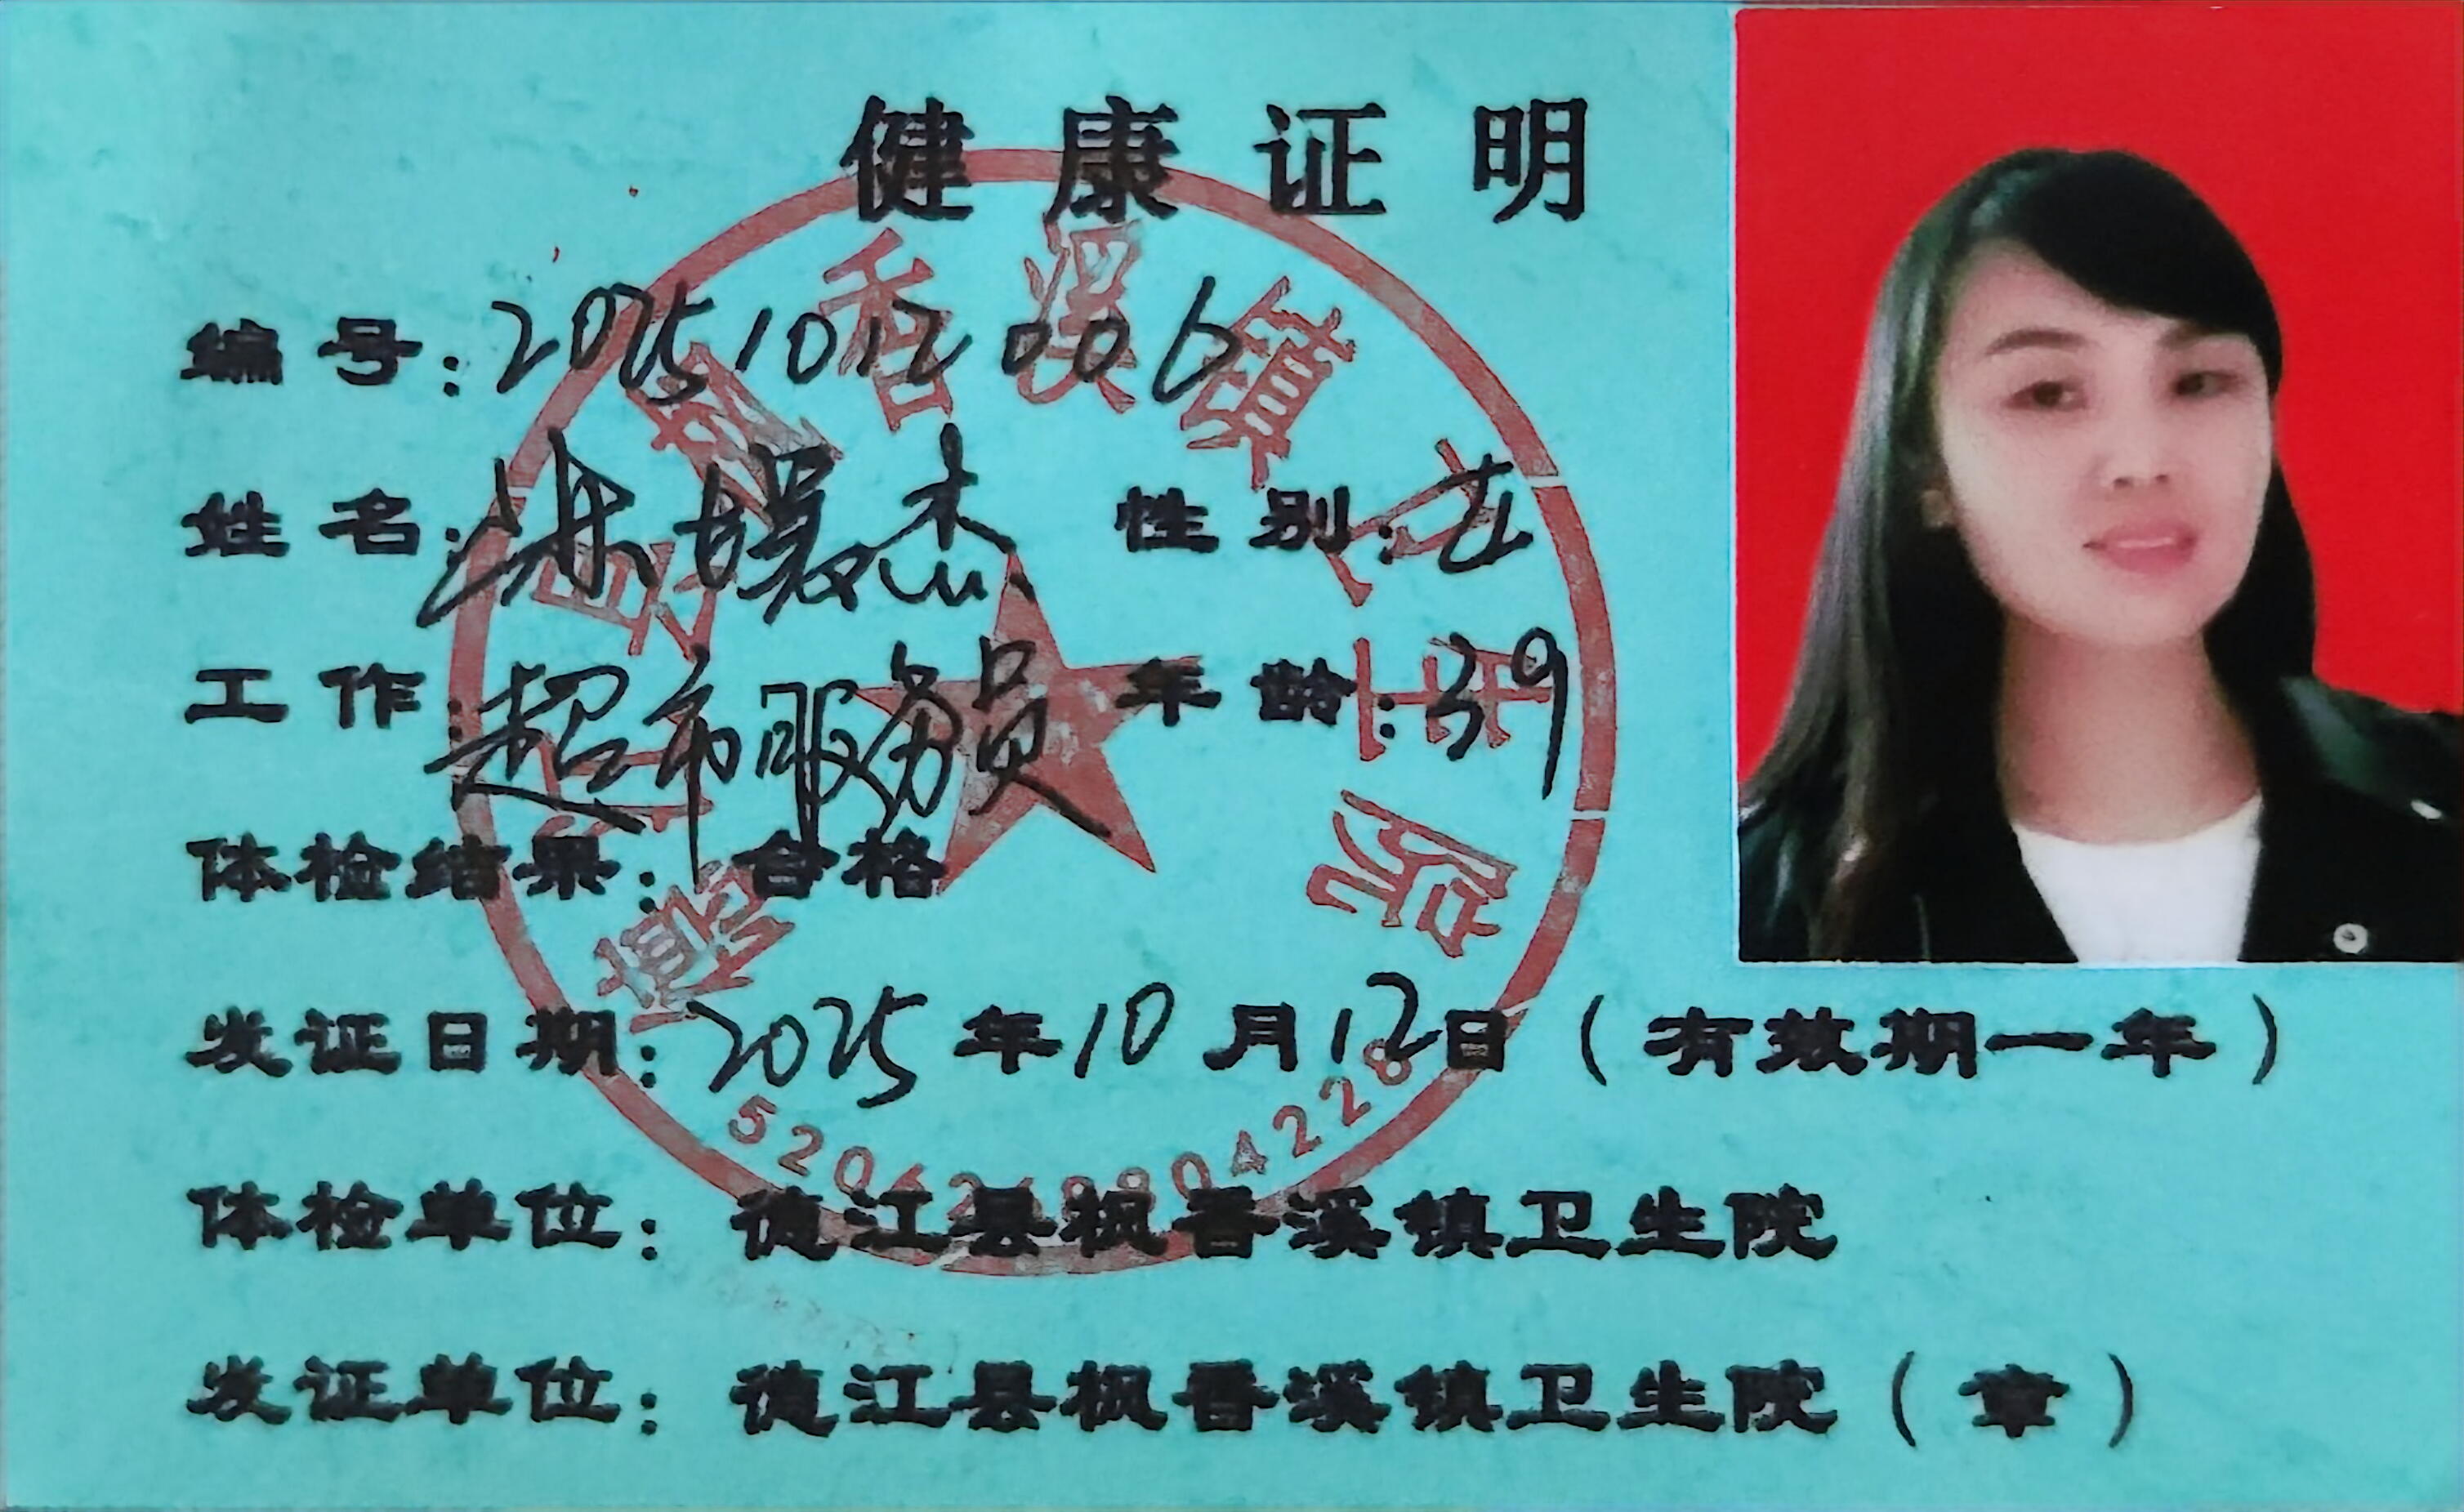 健康证明
编号：20251012006
姓名： 性别：女
工作：超市服务员 年龄：39
体检结果：合格
发证日期：2025年10月12日（有效期一年）
体检单位：德江县枫香溪镇卫生院
发证单位：德江县枫香溪镇卫生院（章）
枫香溪镇卫生院